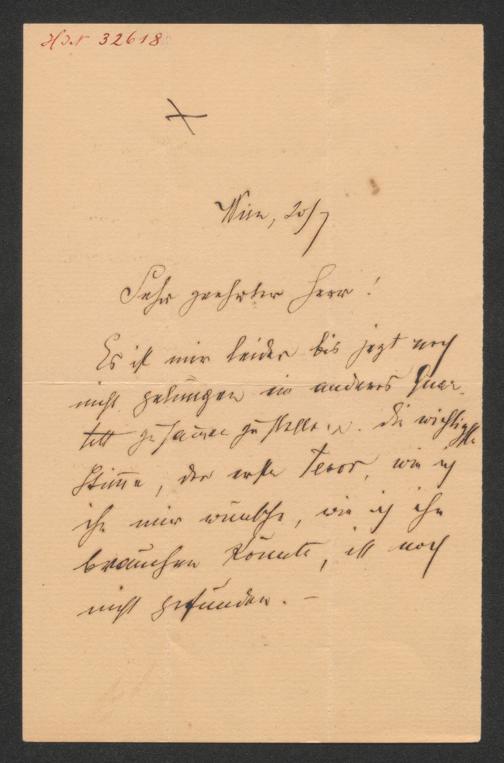 H.I.N. 32618
Wien, 20/7
Sehr geehrter Herr!
Es ist mir leider bis jezt noch
nicht gelungen ein anderes Quar-
tett zusammen zu stellen. die wichtigste
Stimme, der erste Tenor, wie ich
ihn mir wünsche, wie ich ihn
brauchen könnte, ist noch
nicht gefunden. –